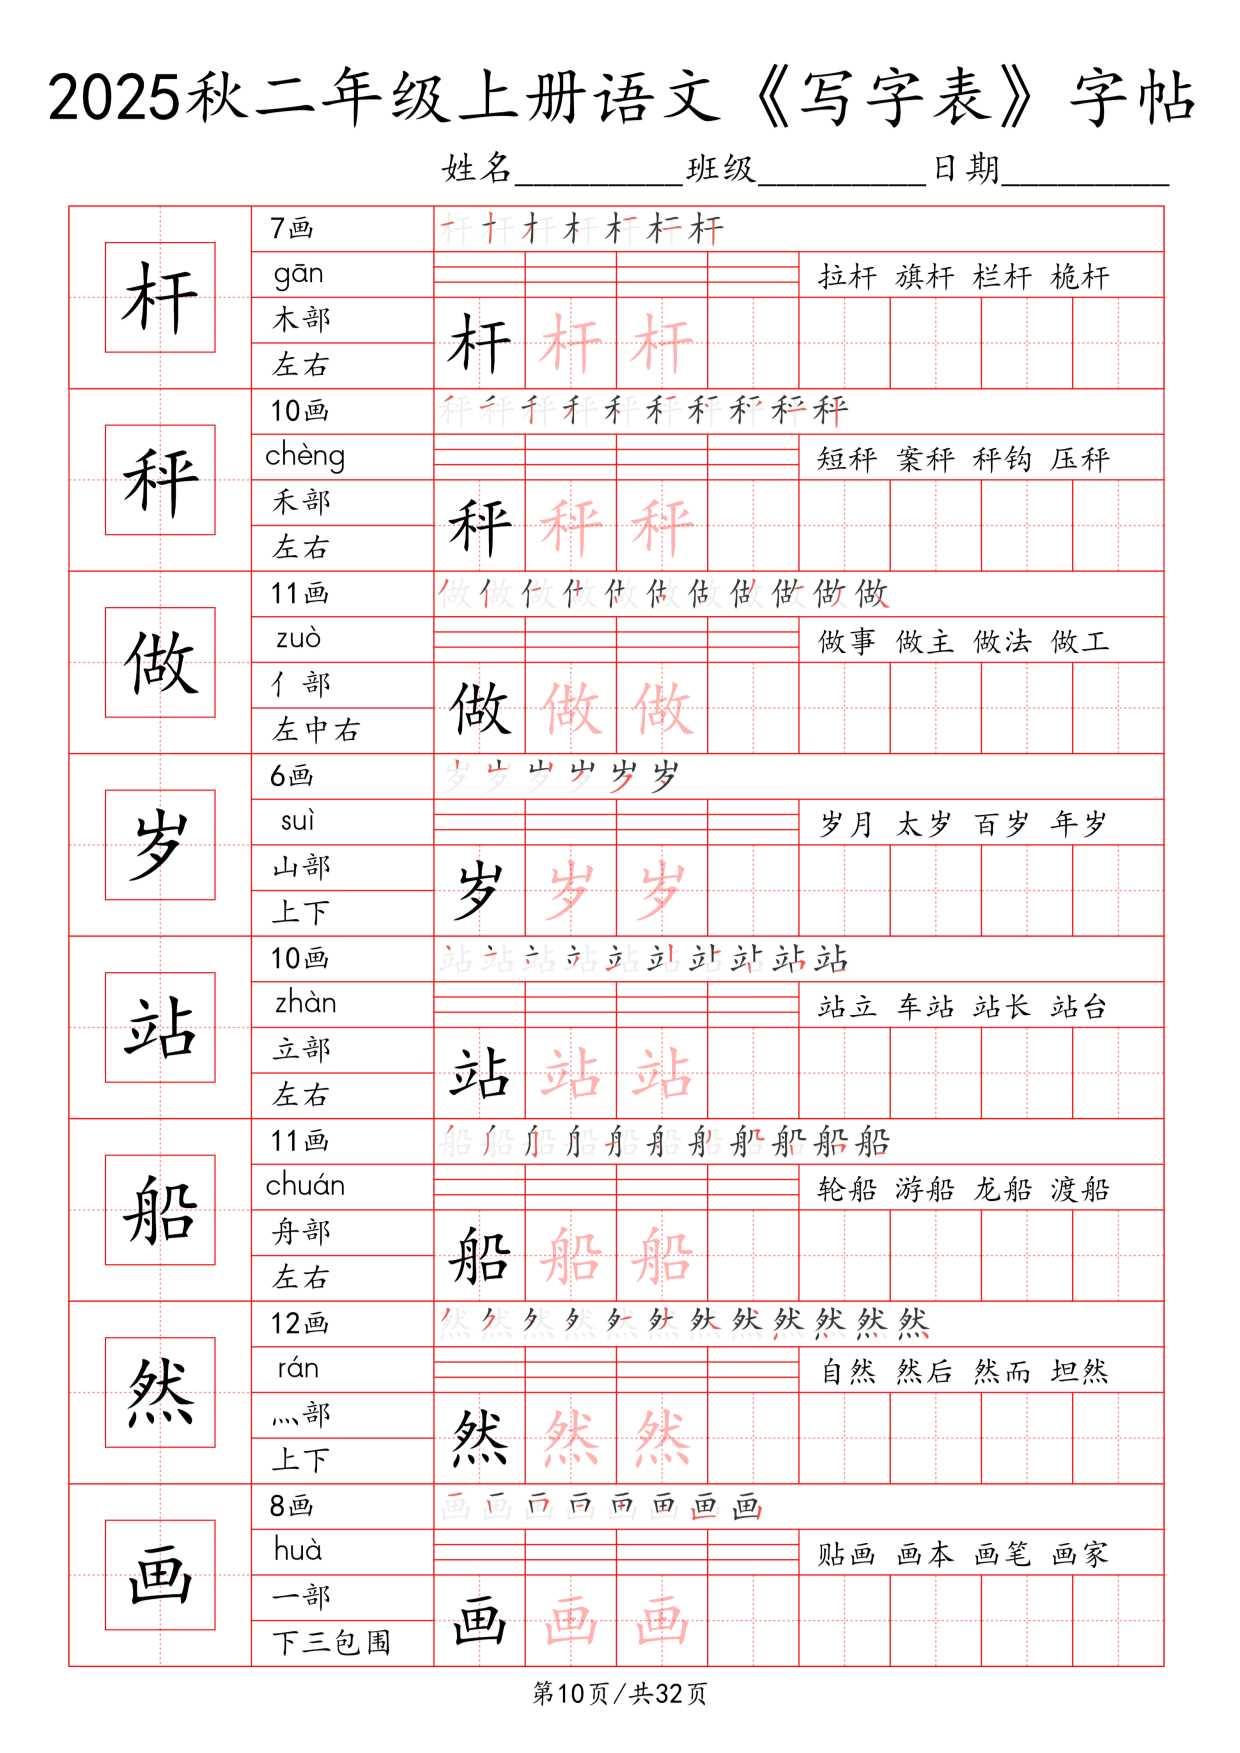 2025秋二年级上册语文《写字表》字帖
姓名_________班级_________日期_________
杆
7画
杆 杆 杆 杆 杆 杆 杆
gān
拉杆 旗杆 栏杆 桅杆
木部
左右
杆 杆 杆
秤
10画
秤 秤 秤 秤 秤 秤 秤 秤 秤 秤
chèng
短秤 案秤 秤钩 压秤
禾部
左右
秤 秤 秤
做
11画
做 做 做 做 做 做 做 做 做 做 做
zuò
做事 做主 做法 做工
亻部
左中右
做 做 做
岁
6画
岁 岁 岁 岁 岁 岁
suì
岁月 太岁 百岁 年岁
山部
上下
岁 岁 岁
站
10画
站 站 站 站 站 站 站 站 站 站
zhàn
站立 车站 站长 站台
立部
左右
站 站 站
船
11画
船 船 船 船 船 船 船 船 船 船 船
chuán
轮船 游船 龙船 渡船
舟部
左右
船 船 船
然
12画
然 然 然 然 然 然 然 然 然 然 然 然
rán
自然 然后 然而 坦然
灬部
上下
然 然 然
画
8画
画 画 画 画 画 画 画 画
huà
贴画 画本 画笔 画家
一部
下三包围
画 画 画
第10页/共32页